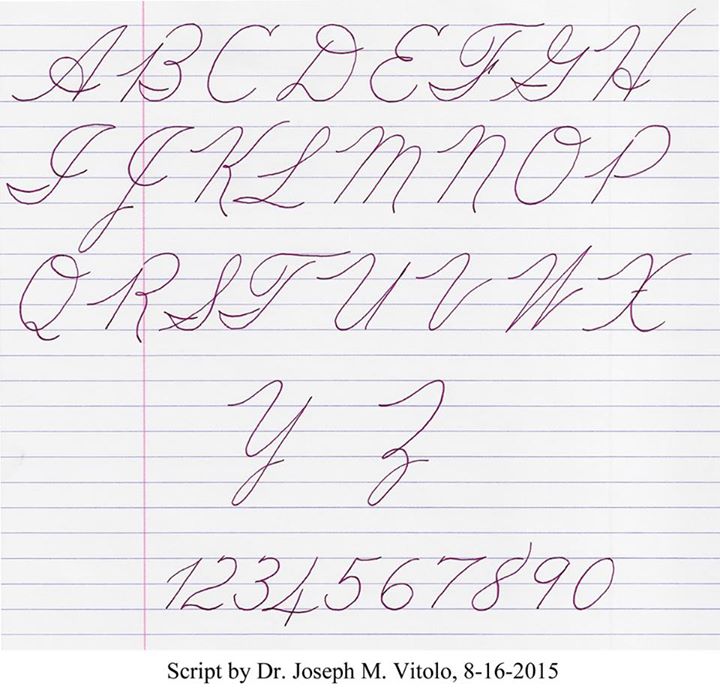 A B C D E F G H
I J K L M N O P
Q R S T U V W X
Y Z
1234567890
Script by Dr. Joseph M. Vitolo, 8-16-2015